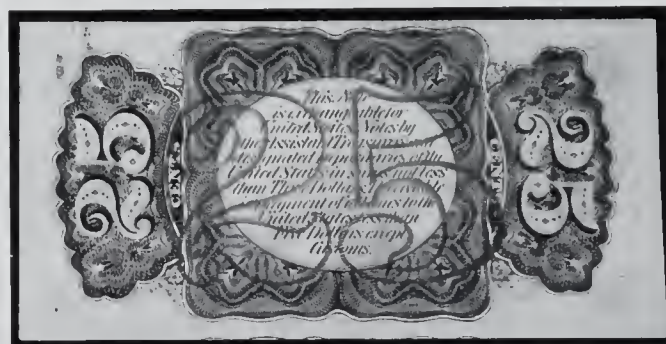 25
25
CENTS
This
is exchangeable for
United States Notes by
the Assistant Treasurers
designated depositaries of the
United States in sums not less
than Three Dollars
payment of all dues to the
United States less than
Five Dollars except
Customs.
25
CENTS
25